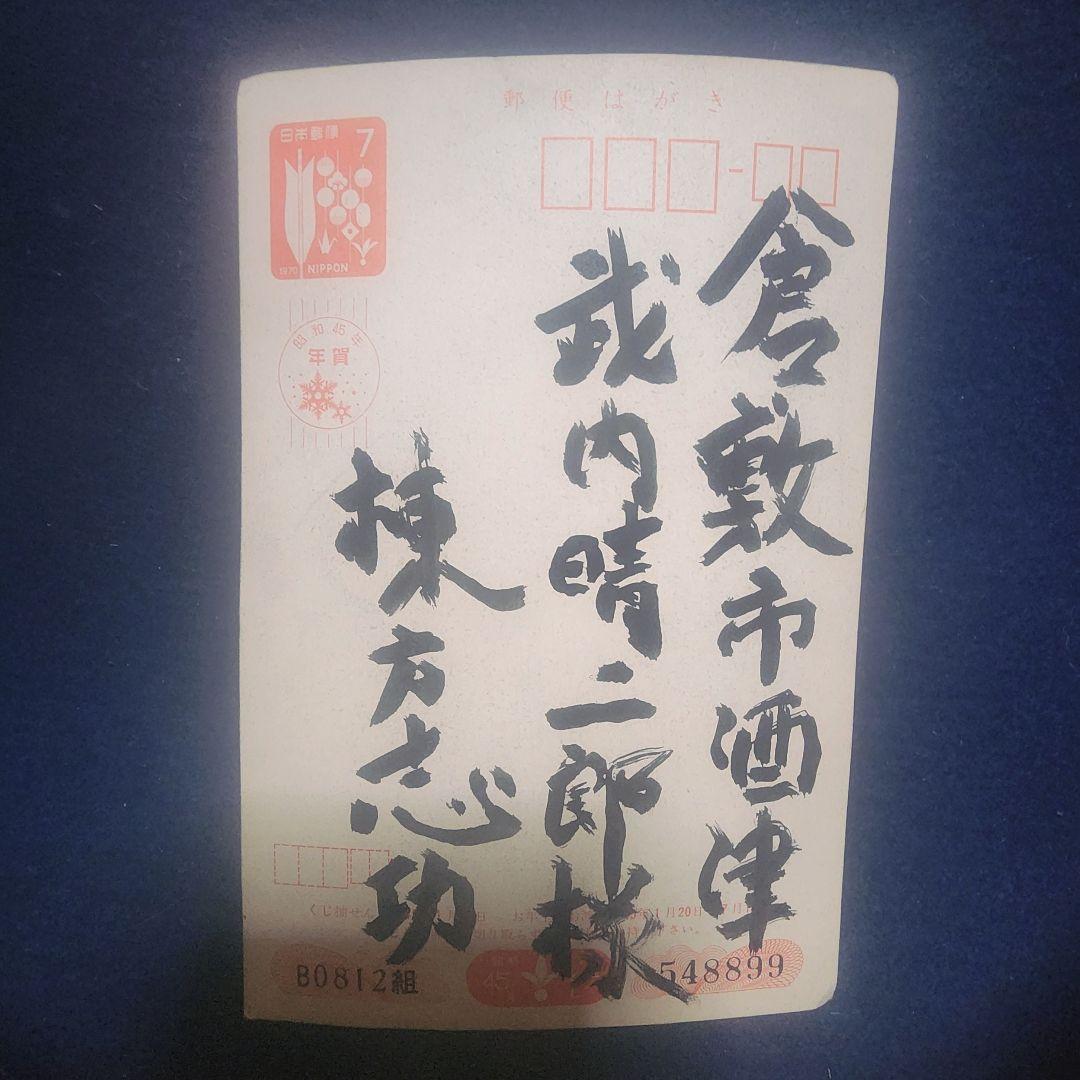 郵便はがき
日本郵便 7
1970 NIPPON
昭和45年
年賀
倉敷市酒津
武内晴二郎様
棟方志功
くじ抽せん
1月20日
B0812組
45
548899